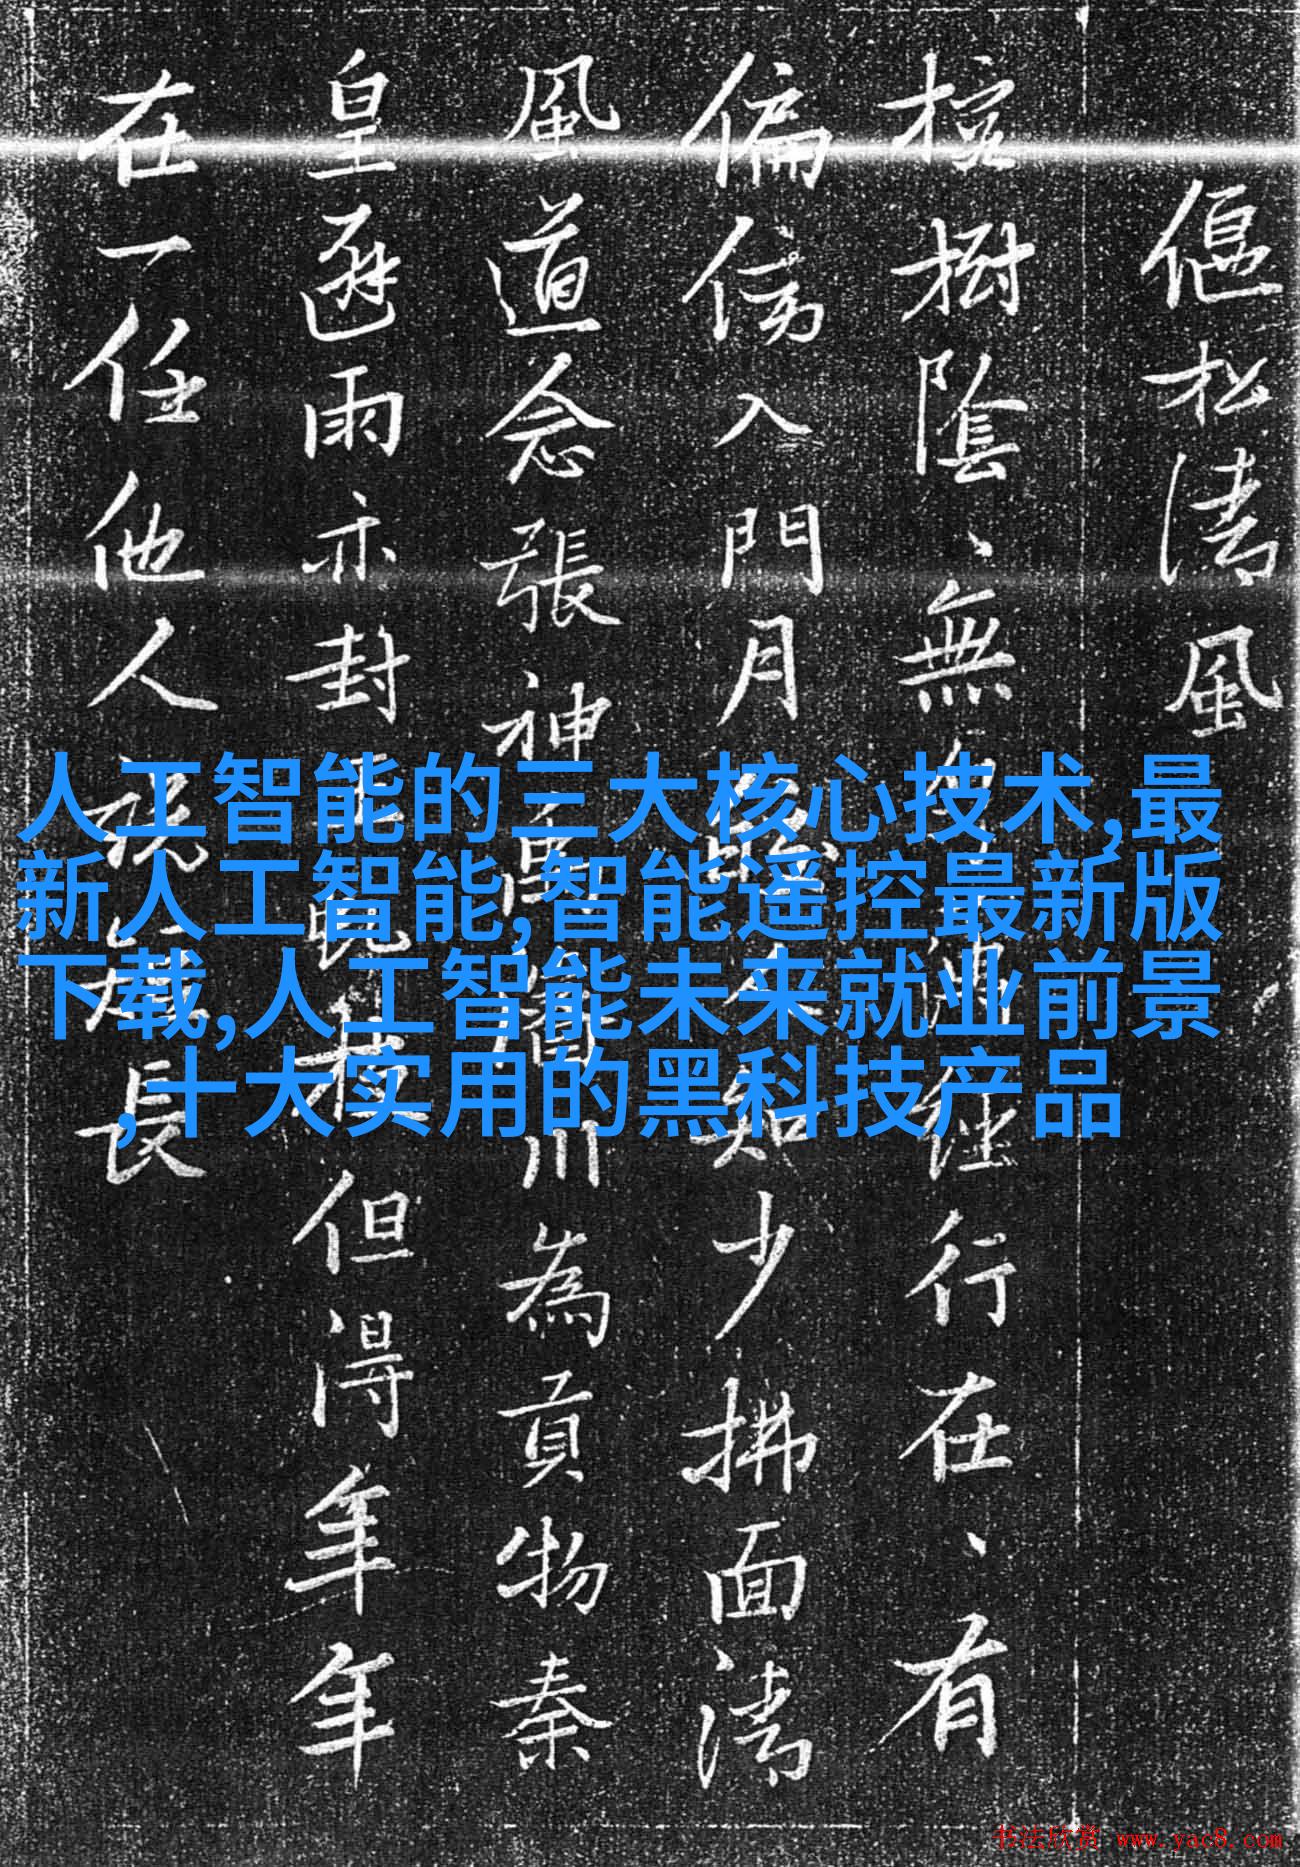 偃松清風
樹陰、無行在、有
偏傍入門月知少拂面清
風道念張神川為貢物秦
皇避雨亦封但得年年
在一任他人説長
人工智能的三大核心技术,最
新人工智能,智能遥控最新版
下载,人工智能未来就业前景
,十大实用的黑科技产品
书法欣赏 www.yac8.com